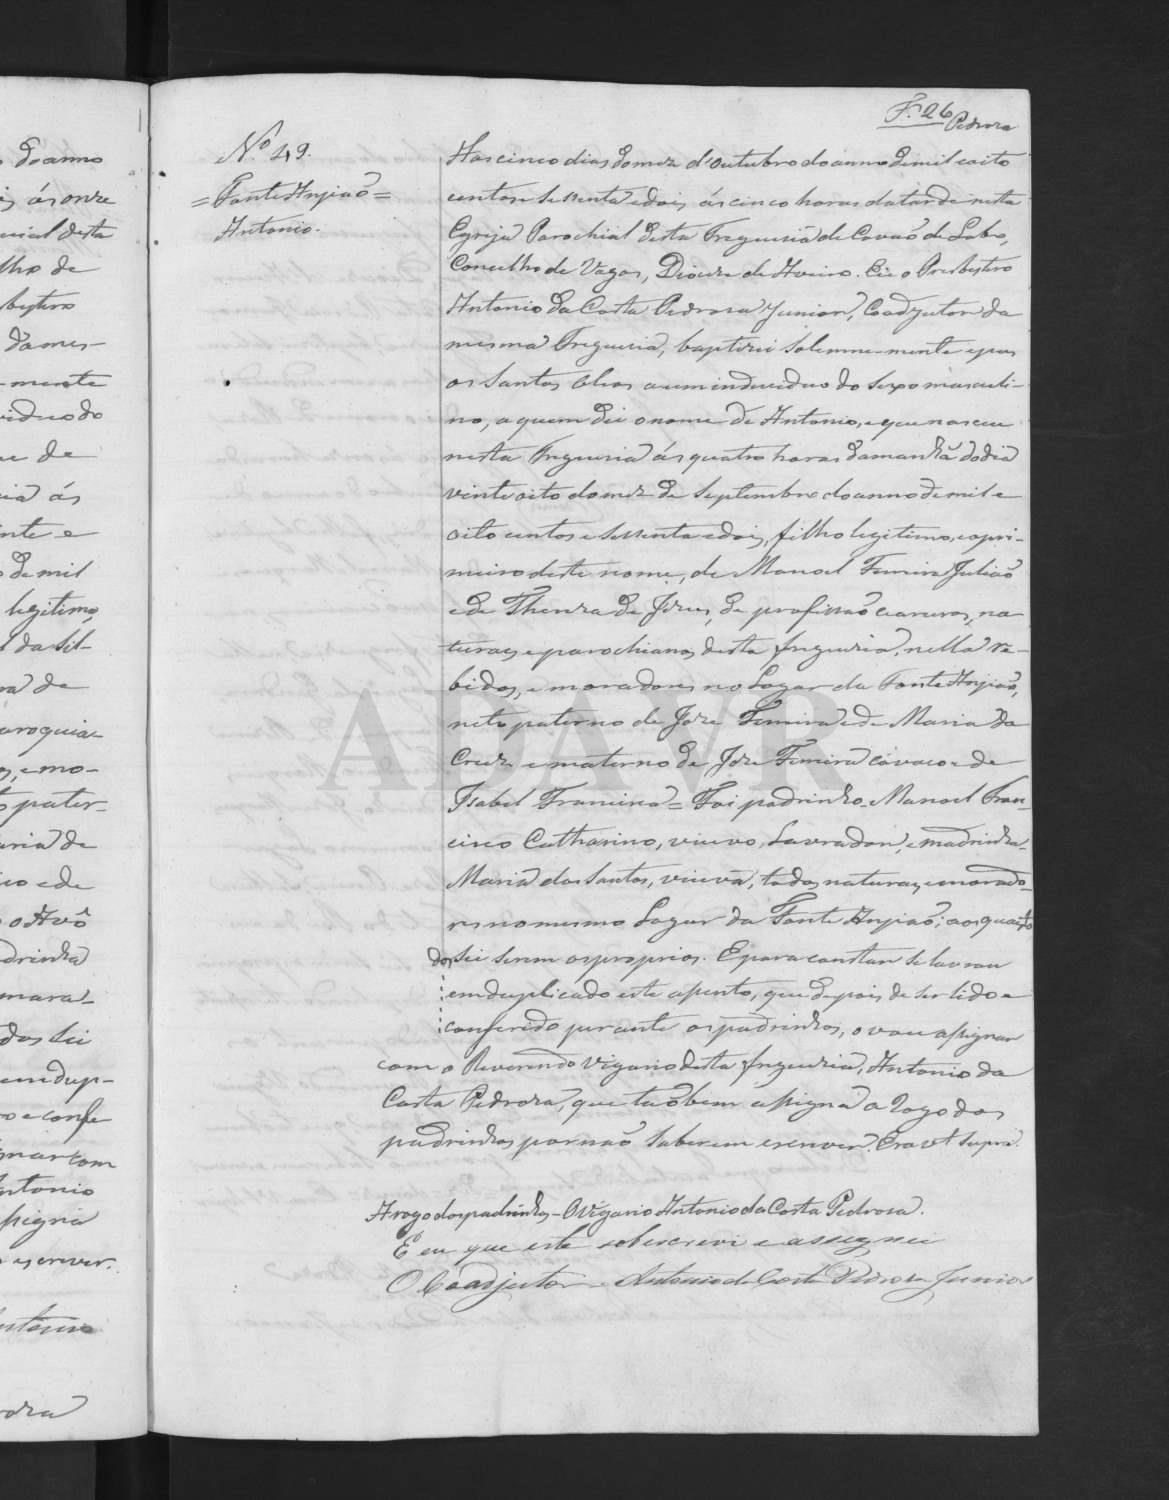 F. 26
Pedroza
N.º 49.
= Fonte Anjiaõ =
Antonio.
Aos cinco dias do mez d'outubro do anno de mil e oito
centos e sessenta e dois, ás cinco horas da tarde nesta
Egreja Parochial desta Freguesia de Covaõ de Lobo,
Concelho de Vagos, Diocese de Aveiro. Eu o Presbytero
Antonio da Costa Pedroza Junior, Coadjutor da
mesma Freguesia, baptizei solemne-mente e puz
os Santos Oleos a um individuo do sexo masculi-
no, a quem dei o nome de Antonio, e que nasceu
nesta Freguesia ás quatro horas da manhã do dia
vinte oito do mez de Septembro do anno de mil e
oito centos e sessenta e dois, filho legitimo, e o pri-
meiro deste nome, de Manoel Ferreira Juliaõ
e de Thereza de Jezus, de profissaõ searevos, na
turaes e parochianos desta freguesia, nella re-
bidos, e moradores no Lugar da Fonte Anjiaõ,
neto paterno de Joze Ferreira e de Maria da
Cruz e materno de Joze Ferreira covaco e de
Isabel Francisca = Foi padrinho Manoel Fran-
cisco Catharino, viuvo, Lavrador, e madrinha
Maria dos Santos, viuva, todos naturaes e morado-
res no mesmo Lugar da Fonte Anjiaõ; aos quaes to
dos sei serem os proprios. E para constar se lavrou
em duplicado este assento, que depois de ser lido e
conferido perante os padrinhos, o vou assignar
com o Reverendo Vigario desta freguesia, Antonio da
Costa Pedroza, que taõbem assigna a rogo dos
padrinhos por naõ saberem escrever. Era ut supra.
A rogo dos padrinhos - O Vigario Antonio da Costa Pedrosa.
E eu que este sobescrevi e assignei
O Coadjutor - Antonio da Costa Pedrosa Junior
do anno
ás onze
desta
lho de
sbytero
da mes-
-mente
viduo do
de
ia ás
nte e
de mil
legitimo,
da Sil-
de
aroquia
e mo-
pater-
aria de
co e de
o Avô
drinha
mara-
dos Sei
em dup-
e confe
gnar com
Antonio
ssigna
escrever.
ADAVR